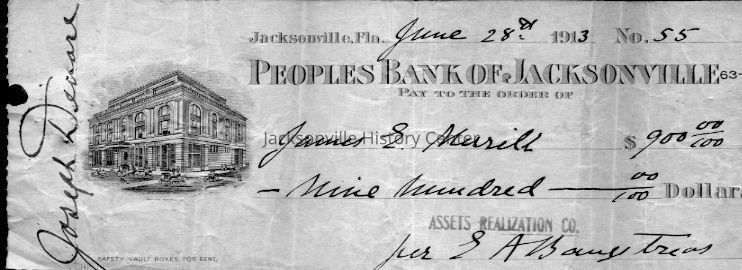 Jacksonville, Fla. June 28th 1913 No. 55
PEOPLES BANK OF JACKSONVILLE 63-
PAY TO THE ORDER OF
Jacksonville History Center
James E. Merrill $ 900 00/100
— Nine hundred — 00/100 Dollar
ASSETS REALIZATION CO.
per E A Bangs Treas
SAFETY VAULT BOXES FOR RENT.
Joseph